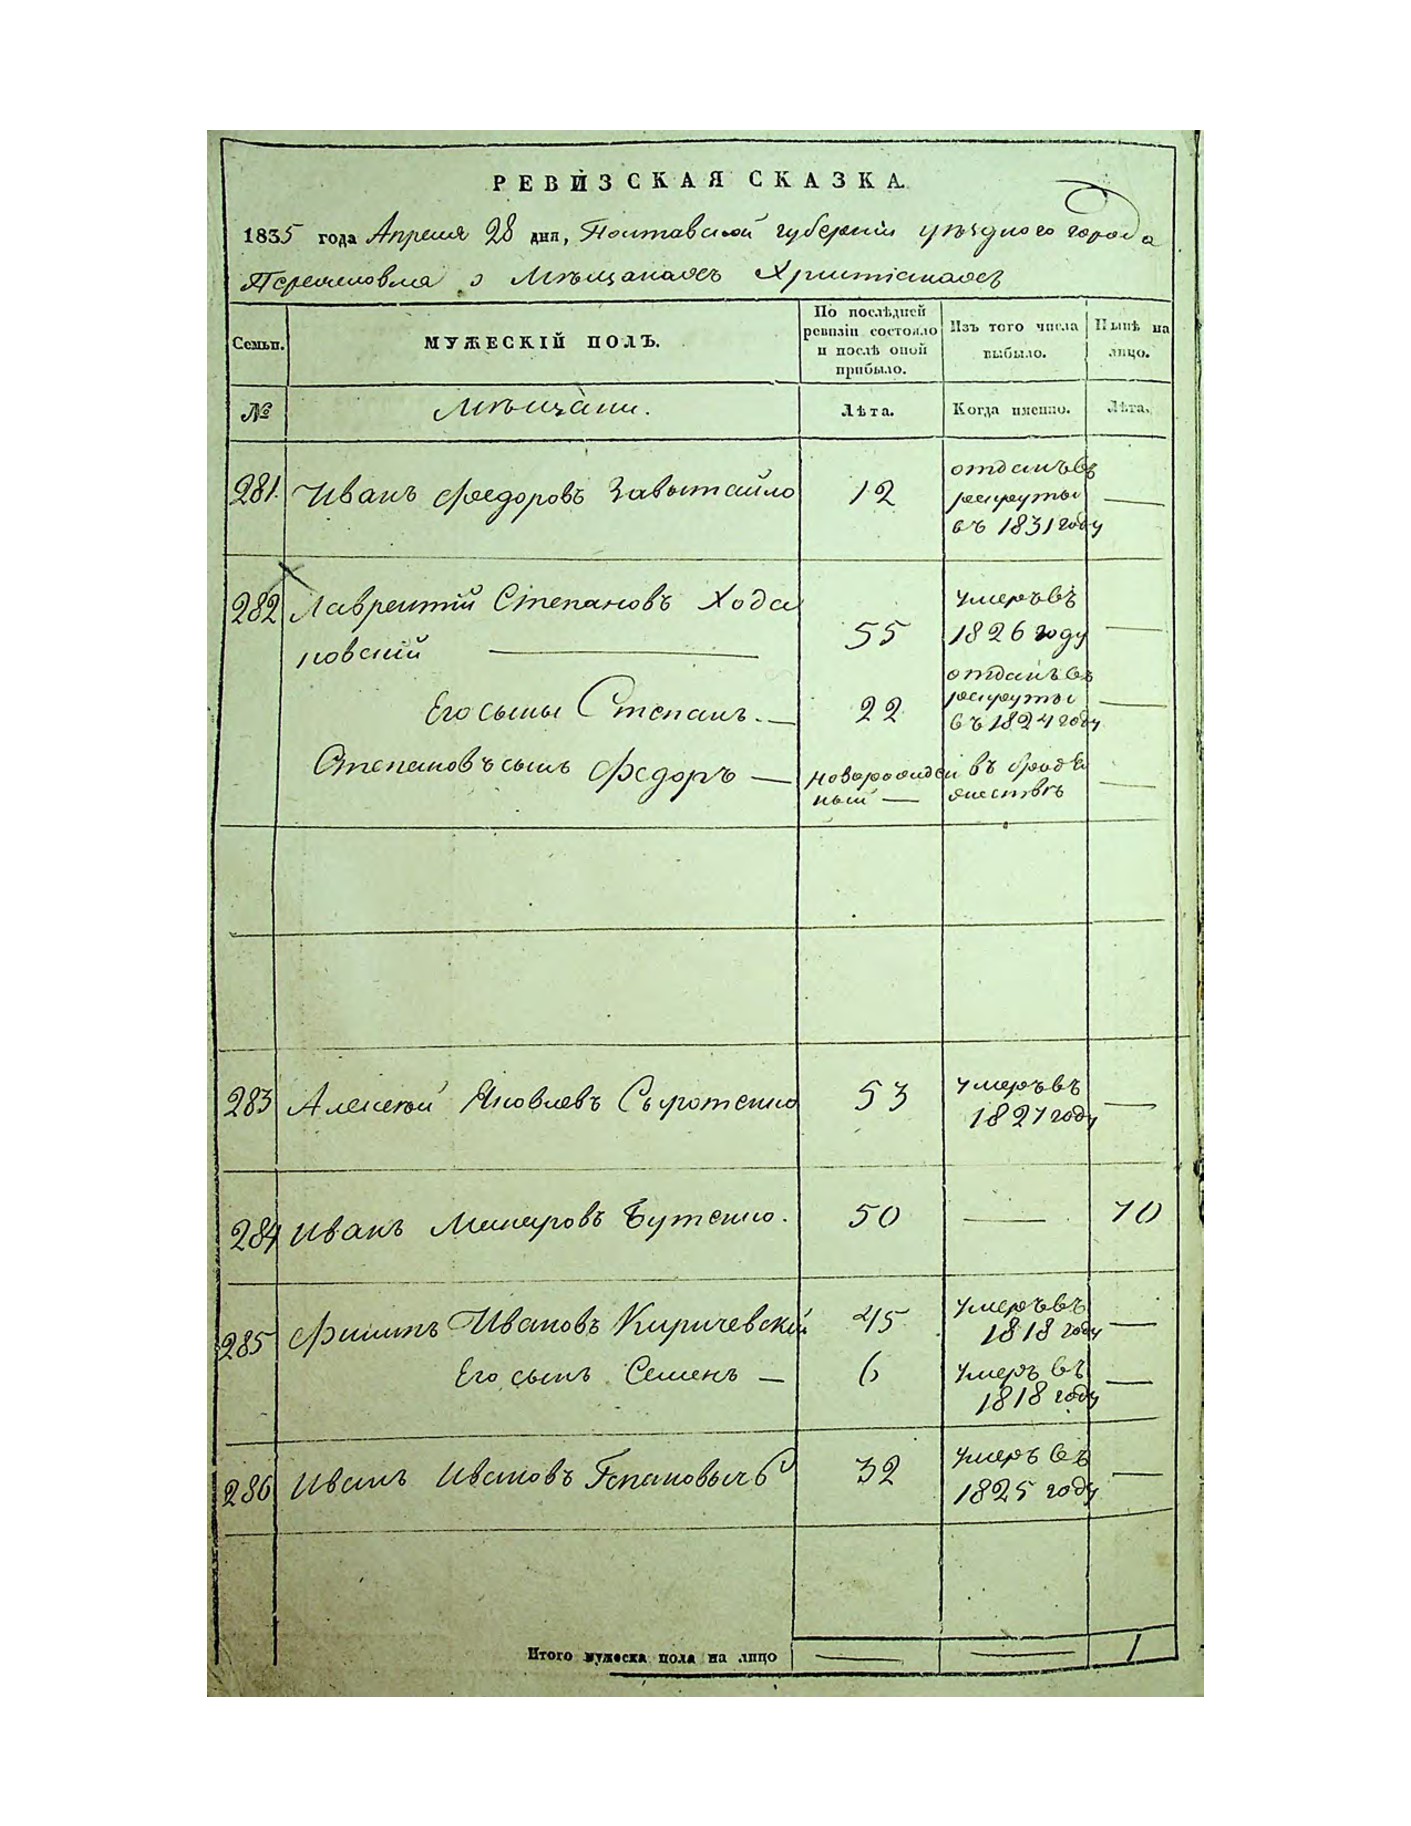 РЕВИЗСКАЯ СКАЗКА.
1835 года Апреля 28 дня, Полтавской губернии уѣзднаго города
Переяслова о Мѣщанахъ Христіанахъ
Семьи.
МУЖЕСКІЙ ПОЛЪ.
По послѣдней
ревизіи состояло
и послѣ оной
прибыло.
Изъ того числа
выбыло.
Нынѣ на
лицо.
№
Мѣщане.
Лѣта.
Когда именно.
Лѣта.
281. Иванъ Федоровъ Завытайло 12
отданъ въ
рекруты
въ 1831 году
282 Лаврентій Степановъ Хода
новскій 55
умеръ въ
1826 году
Его сыны Степанъ. 22
отданъ въ
рекруты
въ 1824 году
Степановъ сынъ Федоръ
новорожден
ный
въ бродя
жествѣ
283 Алексѣй Яковлевъ Сыротенко 53
умеръ въ
1827 году
284 Иванъ Макаровъ Бутенко. 50 70
285 Филипъ Ивановъ Киричевскій 45
умеръ въ
1818 году
Его сынъ Семенъ 6
умеръ въ
1818 году
286 Иванъ Ивановъ Гапановычъ 32
умеръ въ
1825 году
Итого мужеска пола на лицо 1